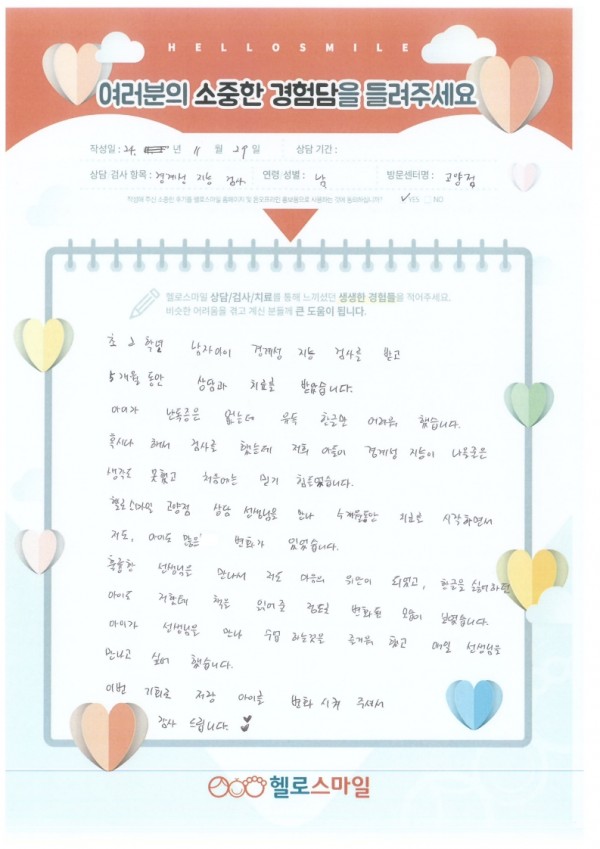 HELLOSMILE
여러분의 소중한 경험담을 들려주세요
작성일 : 24. 년 11 월 29 일 상담 기간 :
상담·검사 항목 : 경계성 지능 검사 연령·성별 : 남 방문센터명 : 고양점
작성해 주신 소중한 후기를 헬로스마일 홈페이지 및 온오프라인 홍보물으로 사용하는 것에 동의하십니까? ✓YES NO
헬로스마일 상담/검사/치료를 통해 느끼셨던 생생한 경험들을 적어주세요.
비슷한 어려움을 겪고 계신 분들께 큰 도움이 됩니다.
초 2 학년 남자아이 경계성 지능 검사를 받고
5개월 동안 상담과 치료를 받았습니다.
아이가 난독증은 없는데 유독 한글만 어려워 했습니다.
혹시나 해서 검사를 했는데 저희 아들이 경계성 지능이 나올줄은
생각도 못했고 처음에는 믿기 힘들었습니다.
헬로스마일 고양점 상담 선생님을 만나 5개월동안 치료를 시작하면서
저도, 아이도 많은 변화가 있었습니다.
훌륭한 선생님을 만나서 저도 마음의 위안이 되었고, 한글을 싫어하던
아이도 저한테 책을 읽어줄 정도로 변화된 모습이 보였습니다.
아이가 선생님을 만나 수업 하는것을 즐거워 했고 매일 선생님을
만나고 싶어 했습니다.
이번 기회로 저랑 아이를 변화 시켜 주셔서
감사 드립니다.
헬로스마일